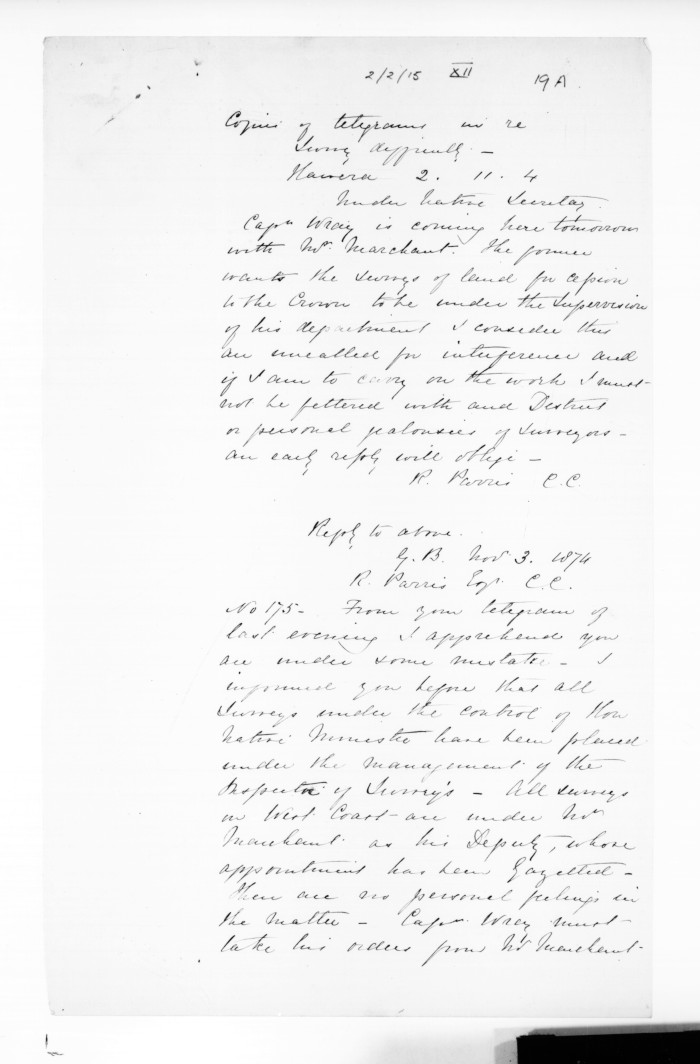 2/2/15 XII 19A
Copies of telegrams in re
Survey difficulty. —
Hawera 2. 11. 4
Under Native Secretary.
Capn Wray is coming here tomorrow
with Mr. Marchant. The former
wants the surveys of land for cession
to the Crown to be under the supervision
of his department I consider this
an uncalled for interference and
if I am to carry on the work I must
not be fettered with and District
or personal jealousies of Surveyors —
an early reply will oblige —
R. Parris C.C.
Reply to above.
G.B. Nov 3. 1874
R. Parris Esqr. C.C.
No 175 — From your telegram of
last evening I apprehend you
are under some mistake — I
informed you before that all
Surveys under the control of Hon
Native Minister have been placed
under the management of the
Inspector of Surveys — All surveys
on West Coast are under Mr
Marchant as his Deputy, whose
appointment has been Gazetted —
There are no personal feelings in
the matter — Capn. Wray must
take his orders from Mr Marchant